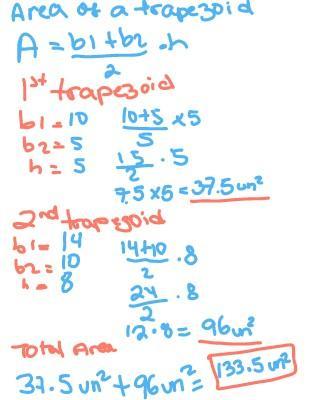 Area of a trapezoid
A = b1+b2/2 · h
1st trapezoid
b1 = 10 10+5/5 x 5
b2 = 5
h = 5 15/2 · 5
7.5 x 5 = 37.5 un²
2nd trapezoid
b1 = 14 14+10/2 · 8
b2 = 10
h = 8 24/2 · 8
12 · 8 = 96 un²
Total Area
37.5 un² + 96 un² = 133.5 un²